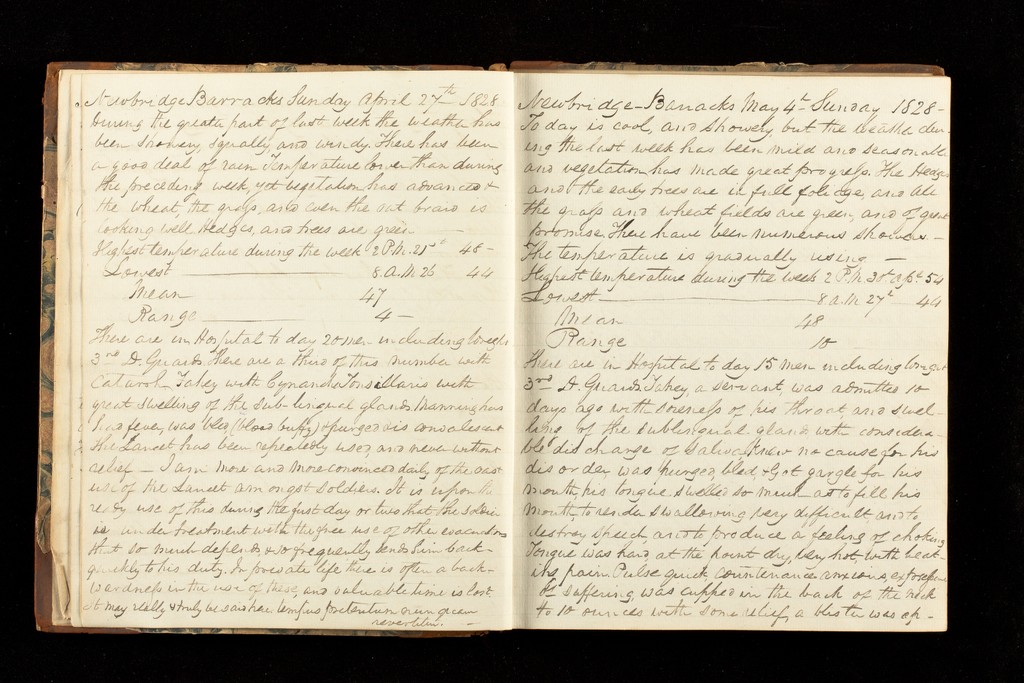 Newbridge Barracks Sunday April 27th 1828
During the greater part of last week the weather has
been showery, squally, and windy. There has been
a good deal of rain Temperature lower than during
the preceding week, yet vegetation has advanced &
the wheat, the grass, and even the oat braid is
looking well. Hedges, and trees are green —
Highest temperature during the week 2 P.M. 21st 48 –
Lowest — 8. A. M. 26 44
Mean 47
Range — 4 –
There are in Hospital to day 20 men including
3rd D. Guards. There are a third of this number with
Catarrh. Tahey with Cynanche Tonsillaris with
great swelling of the sub-lingual glands. Manning has
had fever, was bled (blood buffy) & purged & is convalescent
the Lancet has been repeatedly used and never without
relief — I am more and more convinced daily of the
use of the Lancet amongst soldiers. It is upon the
ready use of this during the first day or two that the soldier
is under treatment with the free use of other evacuations
that so much depends & so frequently sends him back
quickly to his duty. In private life there is often a back-
wardness in the use of these, and valuable time is lost
it may really & truly be said here tempus preteritum nunquam
revertitur. —
Newbridge – Barracks May 4th Sunday 1828 –
To day is cool, and showery, but the weather dur-
ing the last week has been mild and seasonable
and vegetation has made great progress. The Hedges
and the early trees are in full foliage, and all
the grass and wheat fields are green, and of great
promise. There have been numerous showers. –
The temperature is gradually rising —
Highest temperature during the week 2 P.M. 30th Apl. 54
Lowest — 8 a.m. 27th 44
Mean 48
Range 10
There are in Hospital to day 15 men including
3rd D. Guards. Tahey, a servant, was admitted 10
days ago with soreness of his throat and swel-
ling of the sublingual gland with considera-
ble discharge of saliva, knew no cause for his
disorder was purged, bled, & got gargle for his
mouth, his tongue swelled so much as to fill his
mouth, to render swallowing very difficult, and to
destroy speech and to produce a feeling of choking
Tongue was hard at the point dry, very hot, with
ing pain. Pulse quick, countenance anxious, expressive
of suffering, was cupped in the back of the neck
to 10 ounces with some relief, a blister was ap-